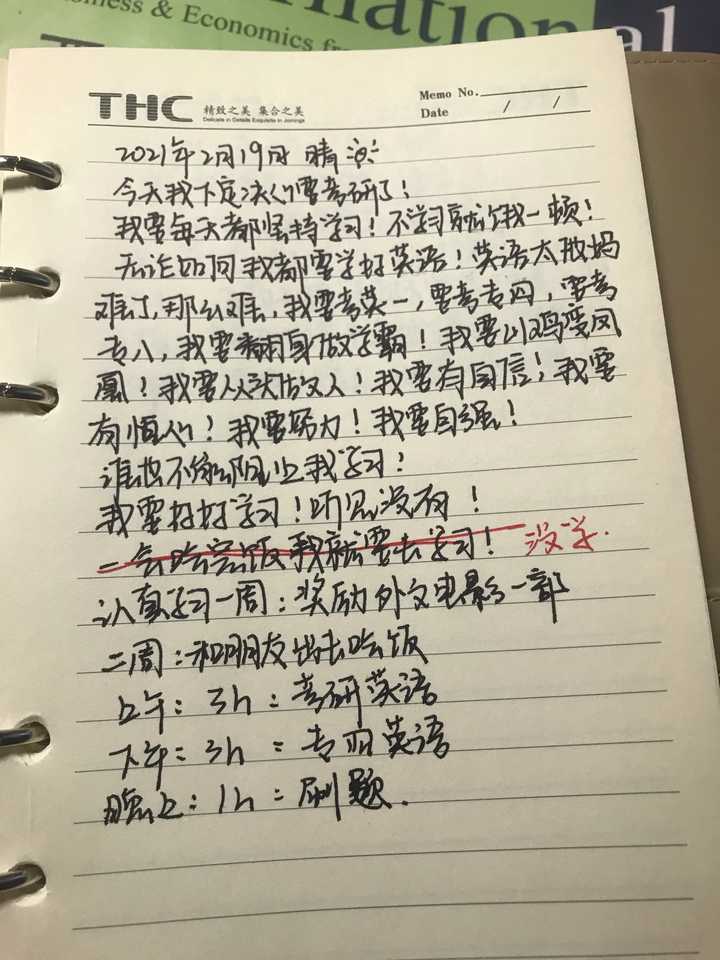 ness & Economics fr
national
THC 精致之美 集合之美
Delicate in Details Exquisite in Joinings
Memo No.
Date / /
2021年2月19日 晴
今天我下定决心要考研了!
我要每天都坚持学习!不学习就饿一顿!
无论如何我都要学好英语!英语太他妈
难了,那么难,我要考英一,要考专四,要考
专八,我要翻身做学霸!我要山鸡变凤
凰!我要从头做人!我要有自信!我要
有恒心!我要努力!我要自强!
谁也不能阻止我学习!
我要好好学习!听见没有!
一会吃完饭我就要去学习! 没学.
认真学习一周:奖励外文电影一部
二周:和朋友出去吃饭
上午:3h:考研英语
下午:3h:专四英语
晚上:1h:刷题.